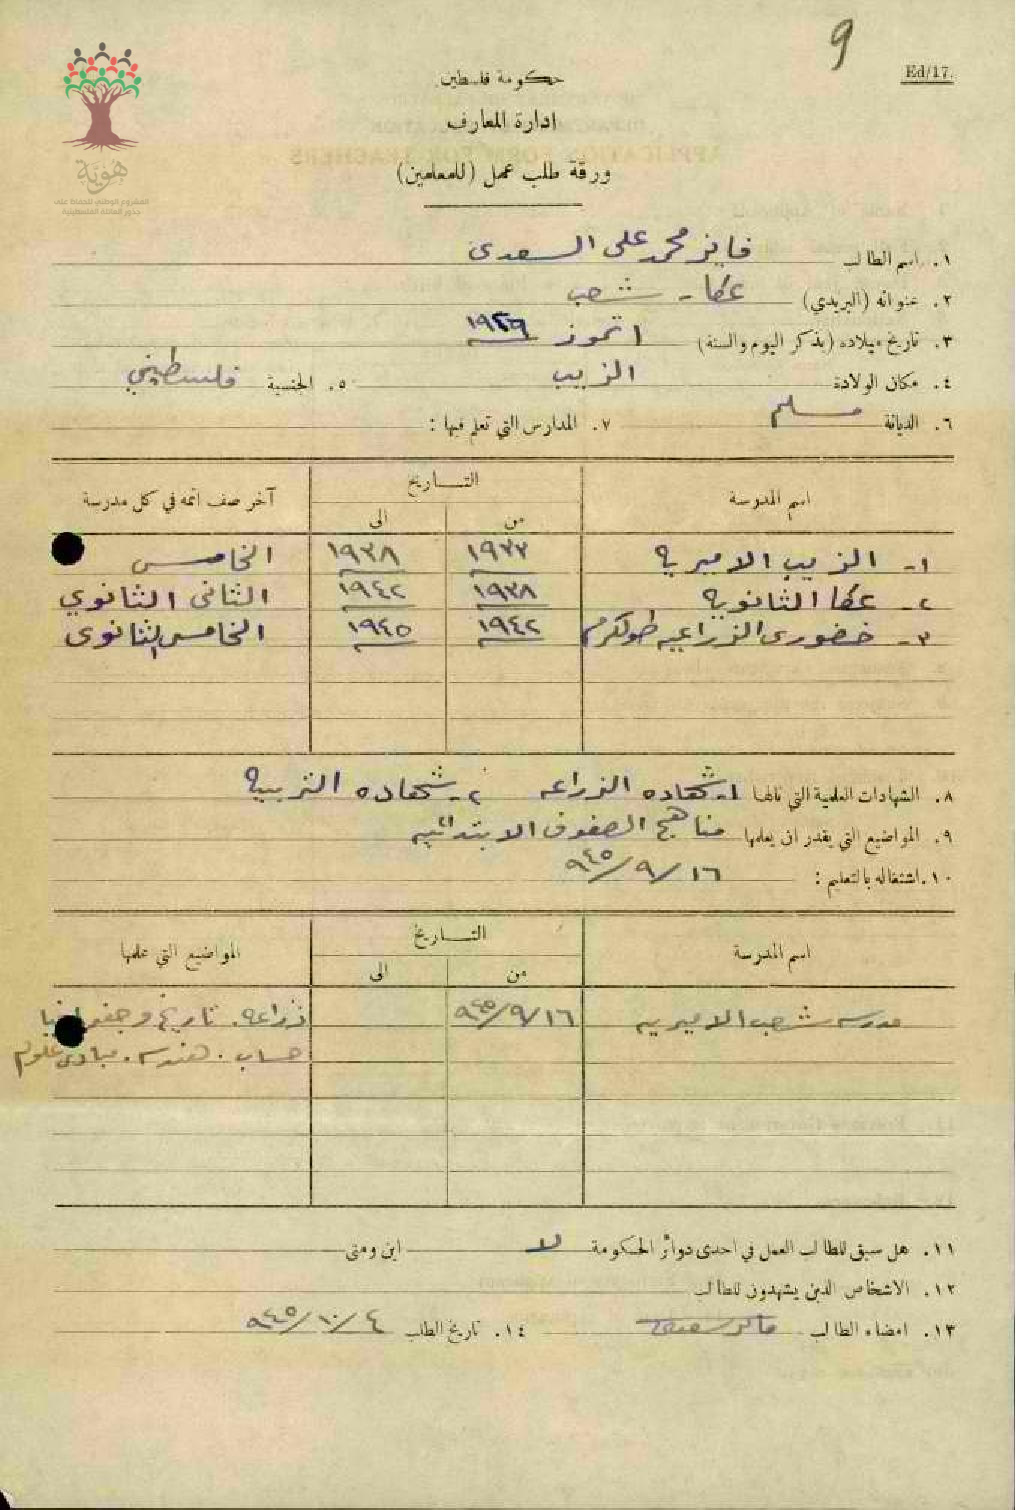 9
Ed/17.
حكومة فلسطين
ادارة المعارف
ورقة طلب عمل (للمعلمين)
هوية
المشروع الوطني للحفاظ على
جذور العائلة الفلسطينية
١. اسم الطالب فايز محمد على السعدى
٢. عنوانه (البريدي) عكا - شعب
٣. تاريخ ميلاده (بذكر اليوم والسنة) ١ تموز ١٩٢٦
٤. مكان الولادة الزيب ٥. الجنسية فلسطيني
٦. الديانة مسلم ٧. المدارس التي تعلم فيها :
اسم المدرسة التــاريخ آخر صف اتمه في كل مدرسة
من الى
١- الزيب الاميرية ١٩٣٣ ١٩٣٨ الخامس
٢- عكا الثانوية ١٩٣٨ ١٩٤٢ الثانى الثانوي
٣- خضورى الزراعيه طولكرم ١٩٤٢ ١٩٤٥ الخامس الثانوى
٨. الشهادات العلمية التي نالها ١- شهاده الزراعه ٢- شهاده التربية
٩. المواضيع التي يقدر ان يعلمها مناهج الصفوف الابتدائيه
١٠. اشتغاله بالتعليم : ١٦/٩/٩٤٥
اسم المدرسة التــاريخ المواضيع التي علمها
من الى
مدرسه شعب الاميريه ١٦/٩/٩٤٥ زراعه. تاريخ وجغرافيا
حساب. هندسه. مبادئ علوم
١١. هل سبق للطالب العمل في احدى دوائر الحكومة لا اين ومتى
١٢. الاشخاص الذين يشهدون للطالب
١٣. امضاء الطالب فايز سعدى ١٤. تاريخ الطلب ٤/١٠/٩٤٥